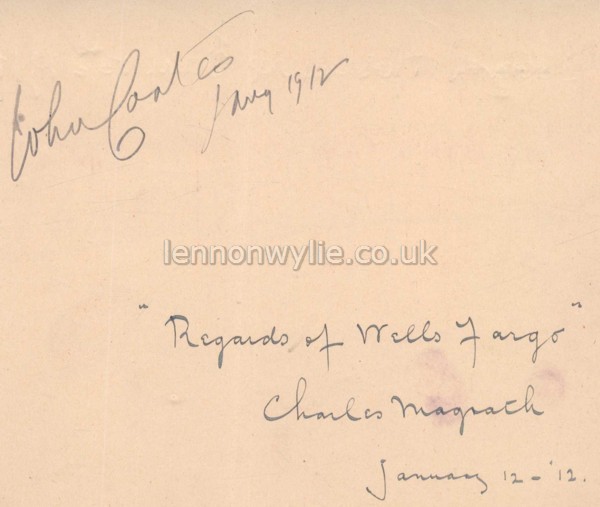 John Coates
Jany 1912
lennonwylie.co.uk
"Regards of Wells Fargo"
Charles Magrath
January 12-'12.